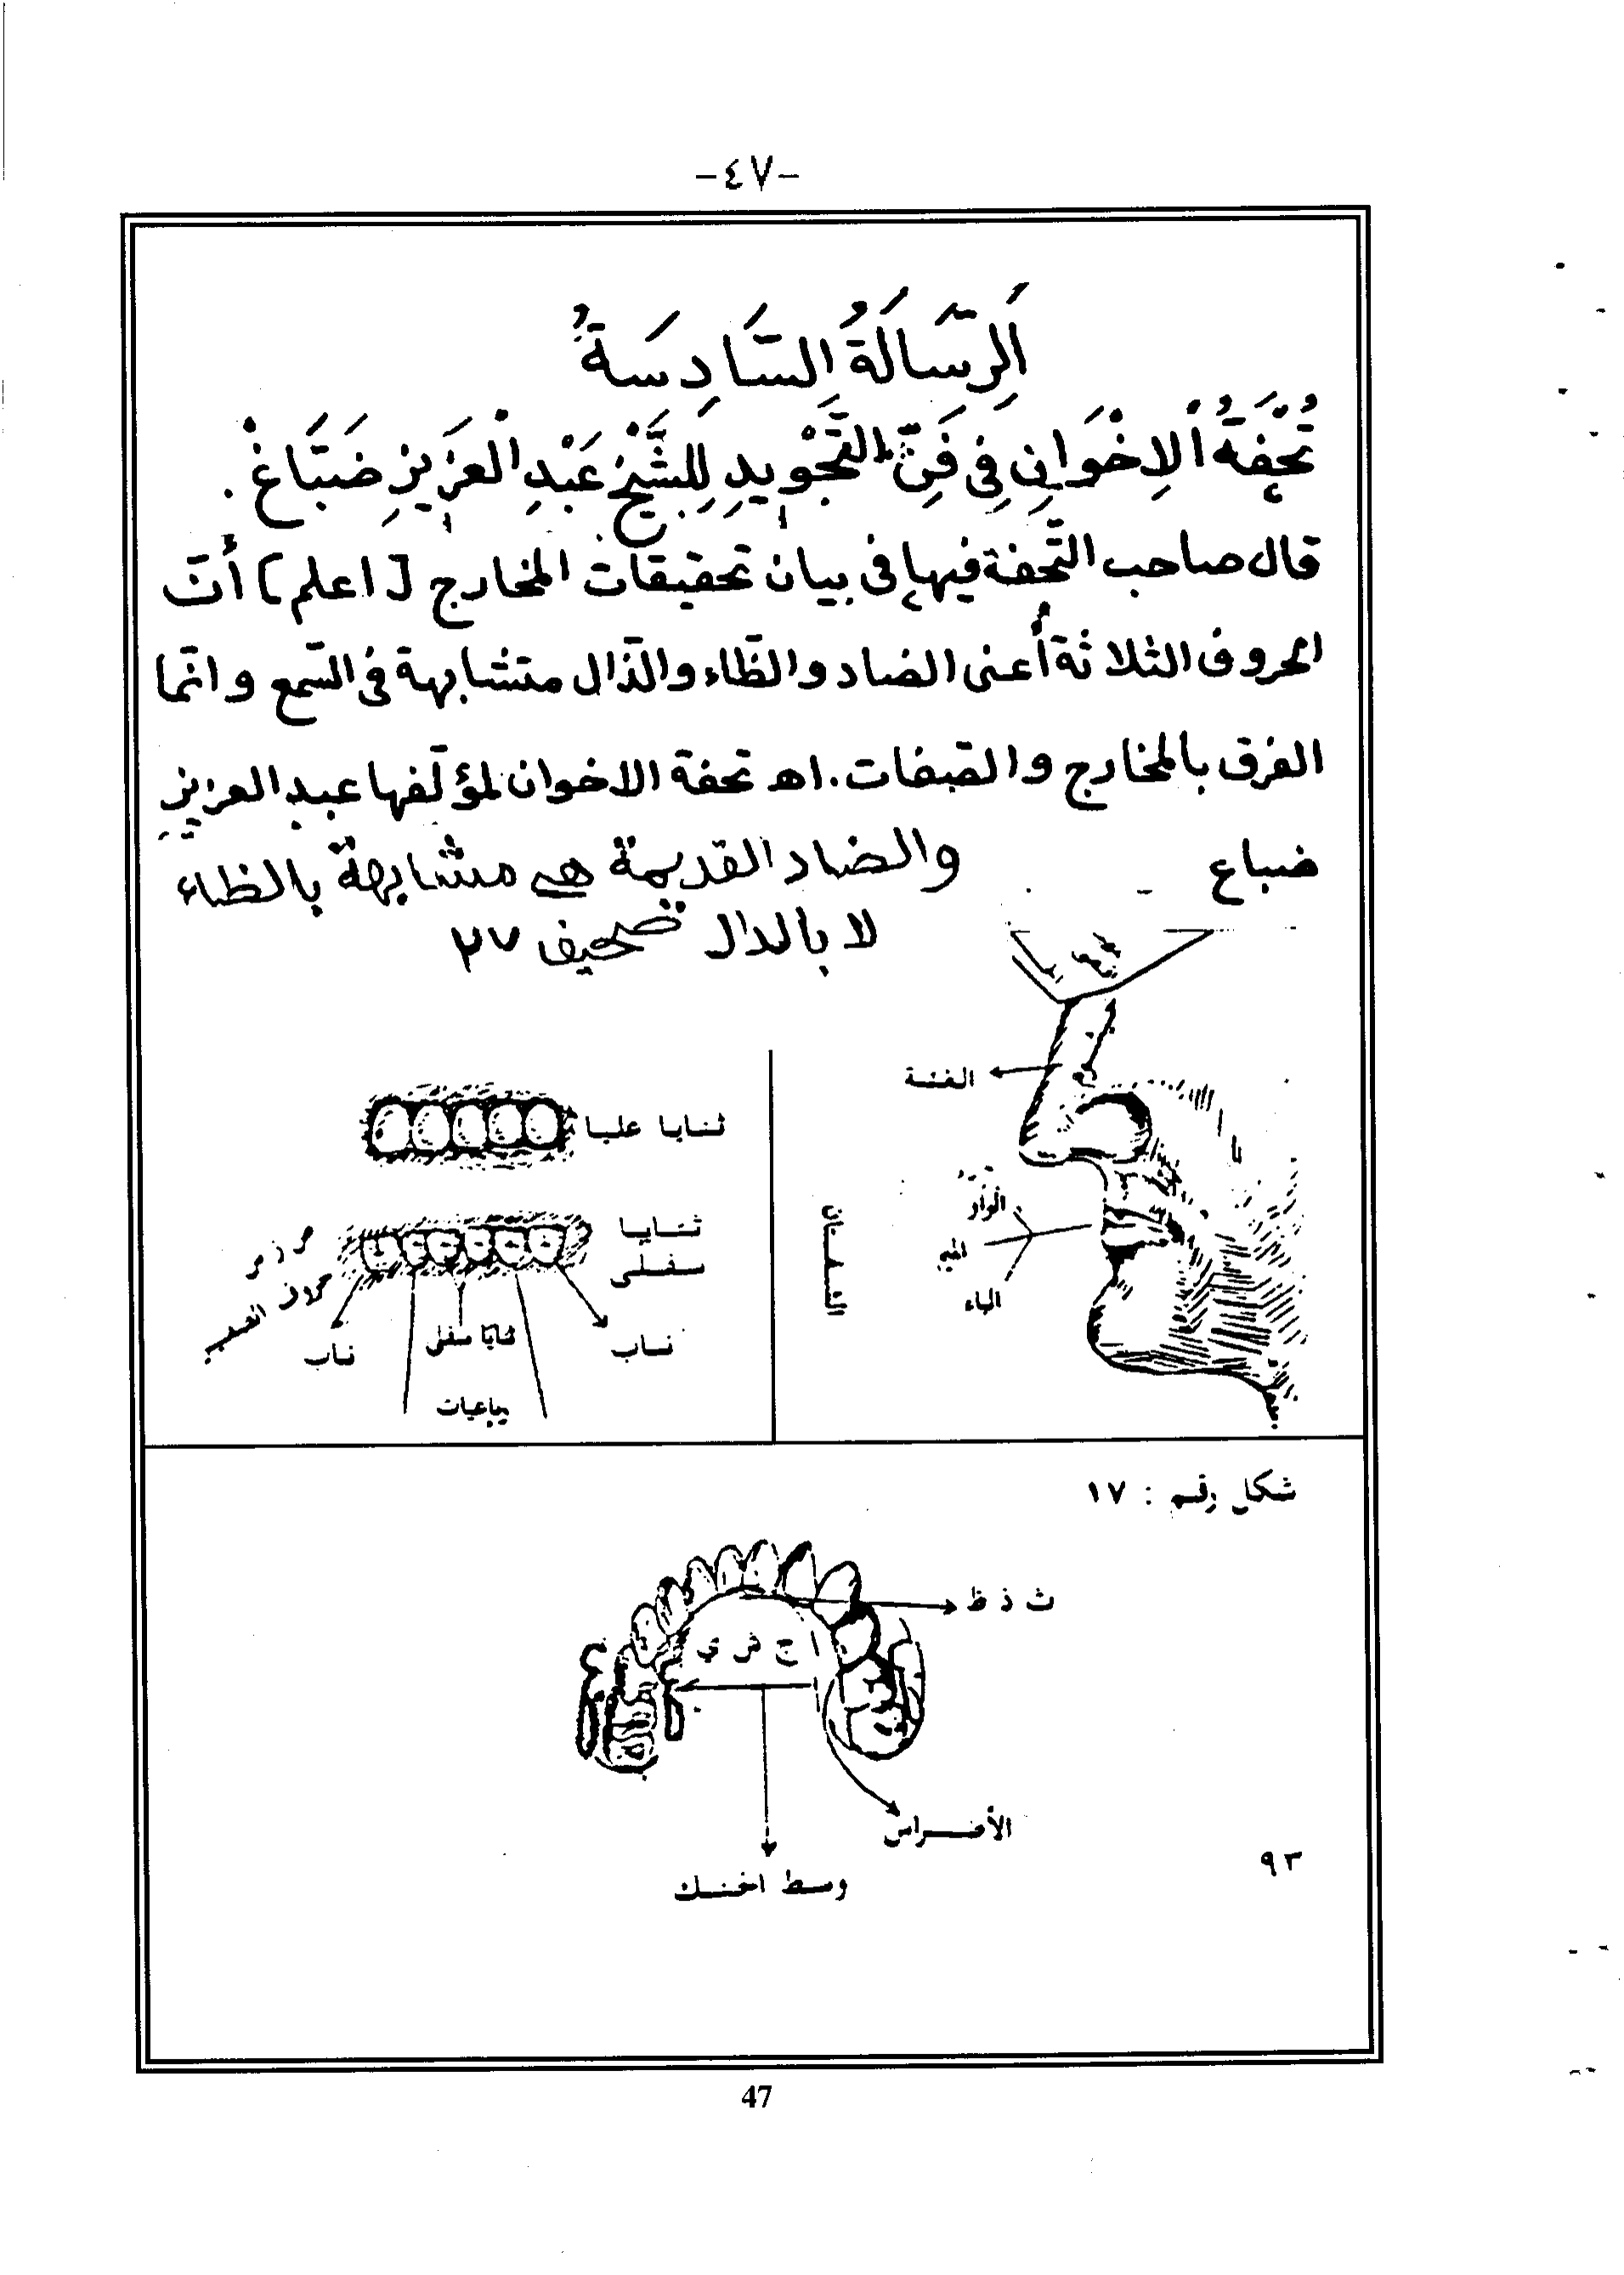 -٤٧-
اَلرِّسَالَةُ السَّادِسَةُ
تُحْفَةُ الْاِخْوَانِ فِي فَنِّ التَّجْوِيدِ لِلشَّيْخِ عَبْدِ الْعَزِيزِ ضَبَّاغْ.
قال صاحب التّحفة فيها في بيان تحقيقات المخارج [اعلم] أنّ
الحروف الثلاثة أعنى الضاد والظّاء والذّال متشابهة في السّمع وانّما
الفرق بالمخارج والصّفات. اهـ تحفة الاخوان لمؤلّفها عبد العزيز
ضباع والضاد القديمة هي مشابهة بالظاء
لا بالدال صحيف ٢٧
الغنة
ثنايا عليا
الواو
الميم
الباء
الشفتان
ثنايا
سفلى
ص ز س
حروف الصفير
ناب
ثنايا سفلى
ناب
رباعيات
شكل رقم : ١٧
ث ذ ظ
ج ش ي
الأضراس
وسط الحنك
٩٣
47